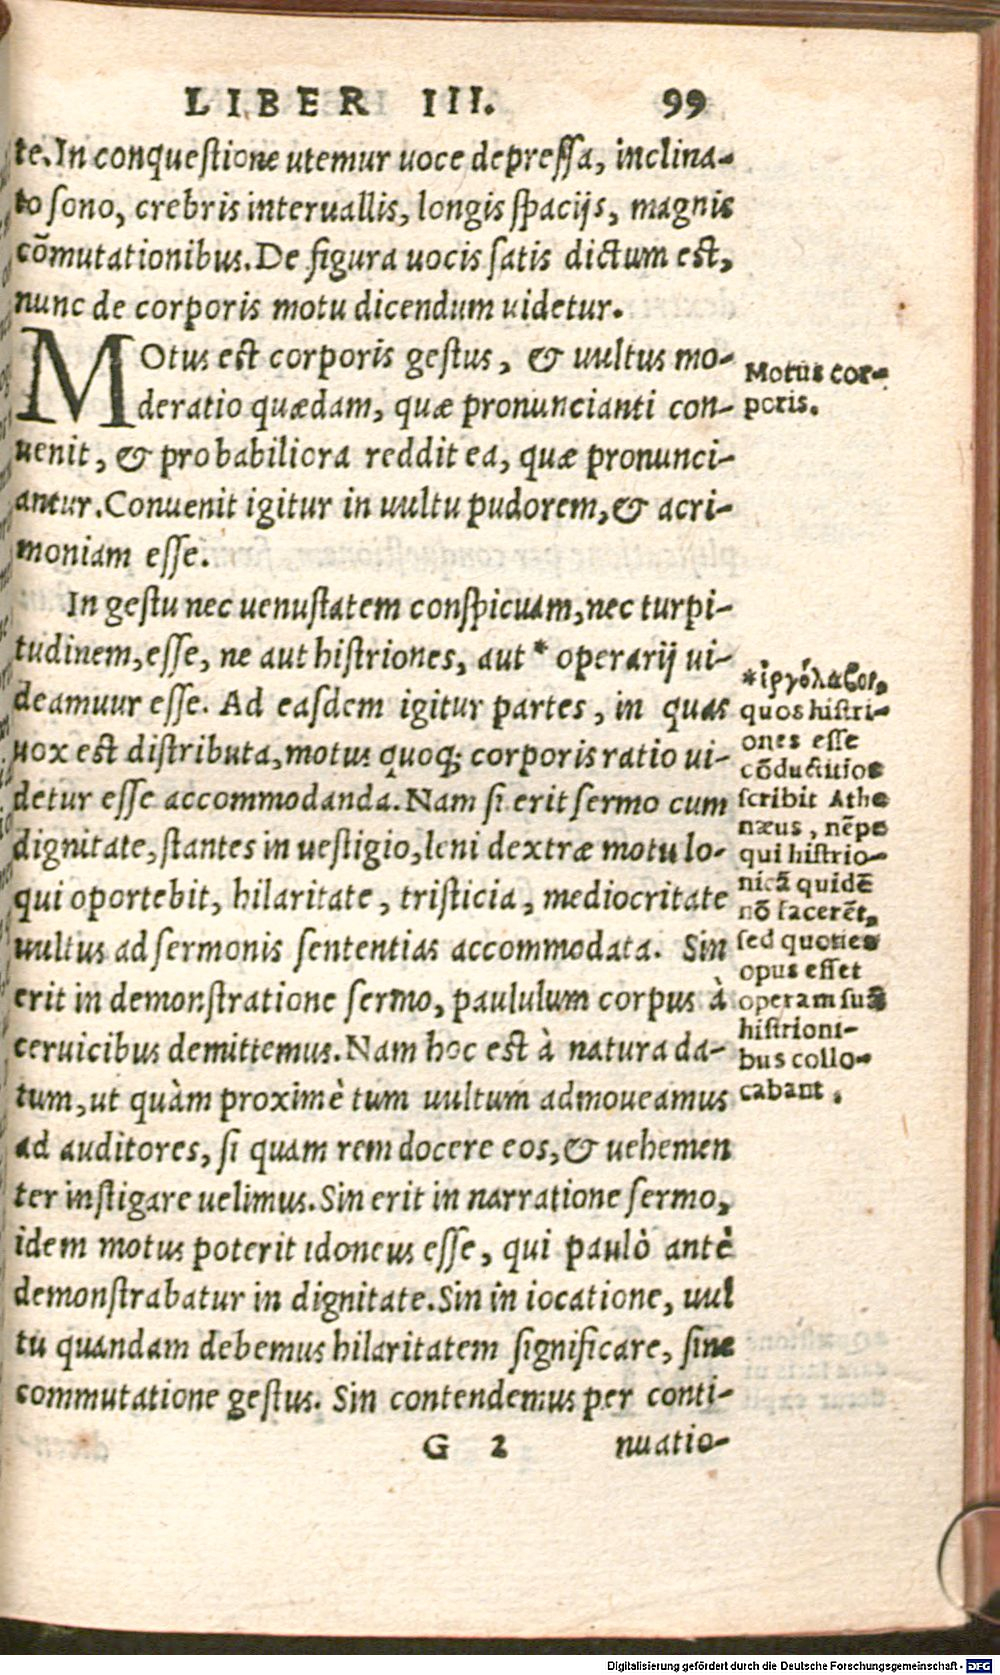 LIBER III. 99
te. In conquestione utemur uoce depressa, inclina-
to sono, crebris interuallis, longis spacijs, magnis
cōmutationibus. De figura uocis satis dictum est,
nunc de corporis motu dicendum uidetur.
MOtus est corporis gestus, & uultus mo-
deratio quædam, quæ pronuncianti con-
uenit, & probabiliora reddit ea, quæ pronunci-
antur. Conuenit igitur in uultu pudorem, & acri-
moniam esse.
In gestu nec uenustatem conspicuam, nec turpi-
tudinem, esse, ne aut histriones, aut * operarij ui-
deamuur esse. Ad easdem igitur partes, in quas
uox est distributa, motus quoq; corporis ratio ui-
detur esse accommodanda. Nam si erit sermo cum
dignitate, stantes in uestigio, leni dextræ motu lo-
qui oportebit, hilaritate, tristicia, mediocritate
uultus ad sermonis sententias accommodata. Sin
erit in demonstratione sermo, paululum corpus à
ceruicibus demittemus. Nam hoc est à natura da-
tum, ut quàm proximè tum uultum admoueamus
ad auditores, si quam rem docere eos, & uehemen
ter instigare uelimus. Sin erit in narratione sermo,
idem motus poterit idoneus esse, qui paulò antè
demonstrabatur in dignitate. Sin in iocatione, uul
tu quandam debemus hilaritatem significare, sine
commutatione gestus. Sin contendemus per conti-
G 2 nuatio-
Motus cor-
poris.
*ἐργόλαβοι,
quos histri-
ones esse
cōductitios
scribit Athe
næus, nēpe
qui histrio-
nicā quidē
nō facerēt,
sed quoties
opus esset
operam suā
histrioni-
bus collo-
cabant.
Digitalisierung gefördert durch die Deutsche Forschungsgemeinschaft - DFG